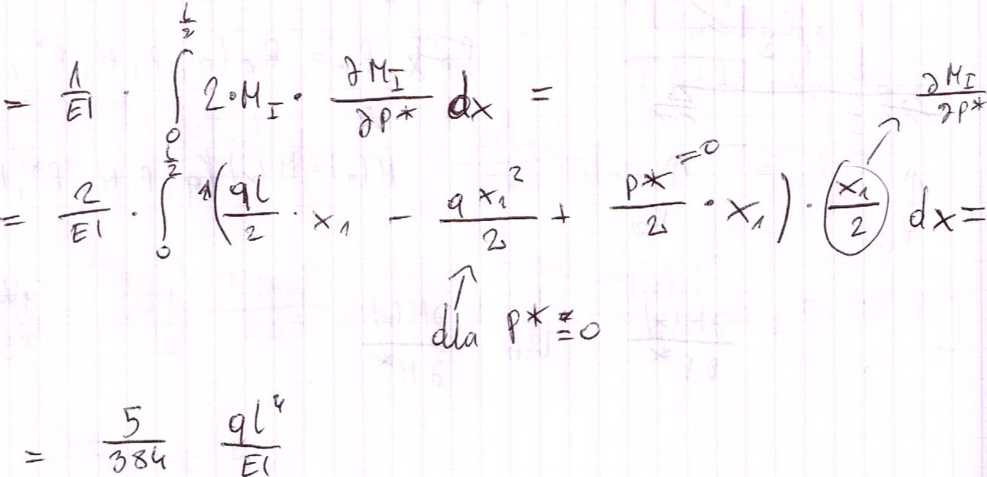 = \frac{1}{EI} \cdot \int_{0}^{\frac{l}{2}} 2 \cdot M_I \cdot \frac{\partial M_I}{\partial P*} dx =
\frac{\partial M_I}{\partial P*}
= \frac{2}{EI} \cdot \int_{0}^{\frac{l}{2}} \left( \frac{ql}{2} \cdot x_1 - \frac{q x_1^2}{2} + \frac{P*^{=0}}{2} \cdot x_1 \right) \cdot \frac{x_1}{2} dx =
dla P* = 0
= \frac{5}{384} \frac{ql^4}{EI}